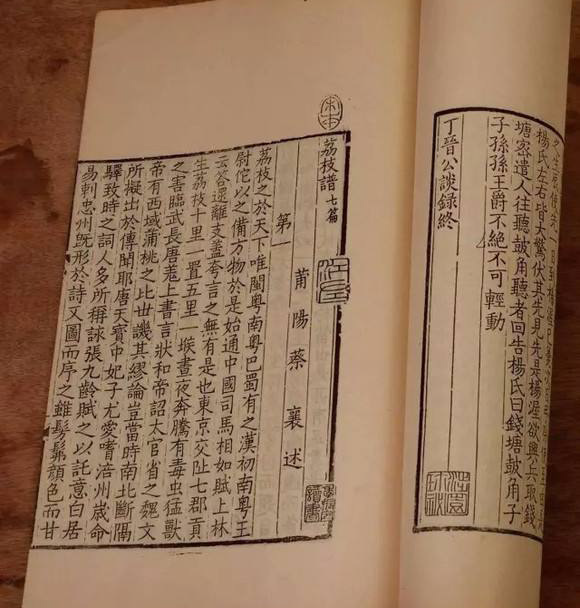 楊氏左右皆大驚伏其先見先是楊渥欲興兵取錢
塘密遣人往聽鼓角聽者回告楊氏曰錢塘鼓角子
子孫孫王爵不絕不可輕動
丁晉公談錄終
宋本
荔枝譜 七篇
莆陽蔡襄述
第一
荔枝之於天下唯閩粵南粵巴蜀有之漢初南粵王
尉佗以之備方物於是始通中國司馬相如賦上林
云荅遝離支蓋夸言之無有是也東京交阯七郡貢
生荔枝十里一置五里一堠晝夜奔騰有毒虫猛獸
之害臨武長唐羌上書言狀和帝詔太官省之魏文
帝有西域蒲桃之比世譏其繆論豈當時南北斷隔
所擬出於傳聞耶唐天寶中妃子尤愛嗜涪州歲命
驛致時之詞人多所稱詠張九齡賦之以託意白居
易刺忠州旣形於詩又圖而序之雖髣髴顏色而甘